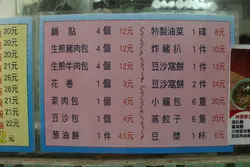 20元
20元
21元
21元
26元
22元
21元
22元
鍋貼 4個 12元
生煎豬肉包 4個 12元
生煎牛肉包 4個 12元
花卷 1個 3元
菜肉包 1個 4元
豆沙包 1個 4元
葱油餅 1件 4.5元
特製油菜 1碟 6元
炸豬扒 1件 10元
豆沙窩餅 1件 24元
豆沙窩餅 1件 24元
小籠包 6隻 20元
蒸餃子 6隻 20元
豆漿 1杯 6元